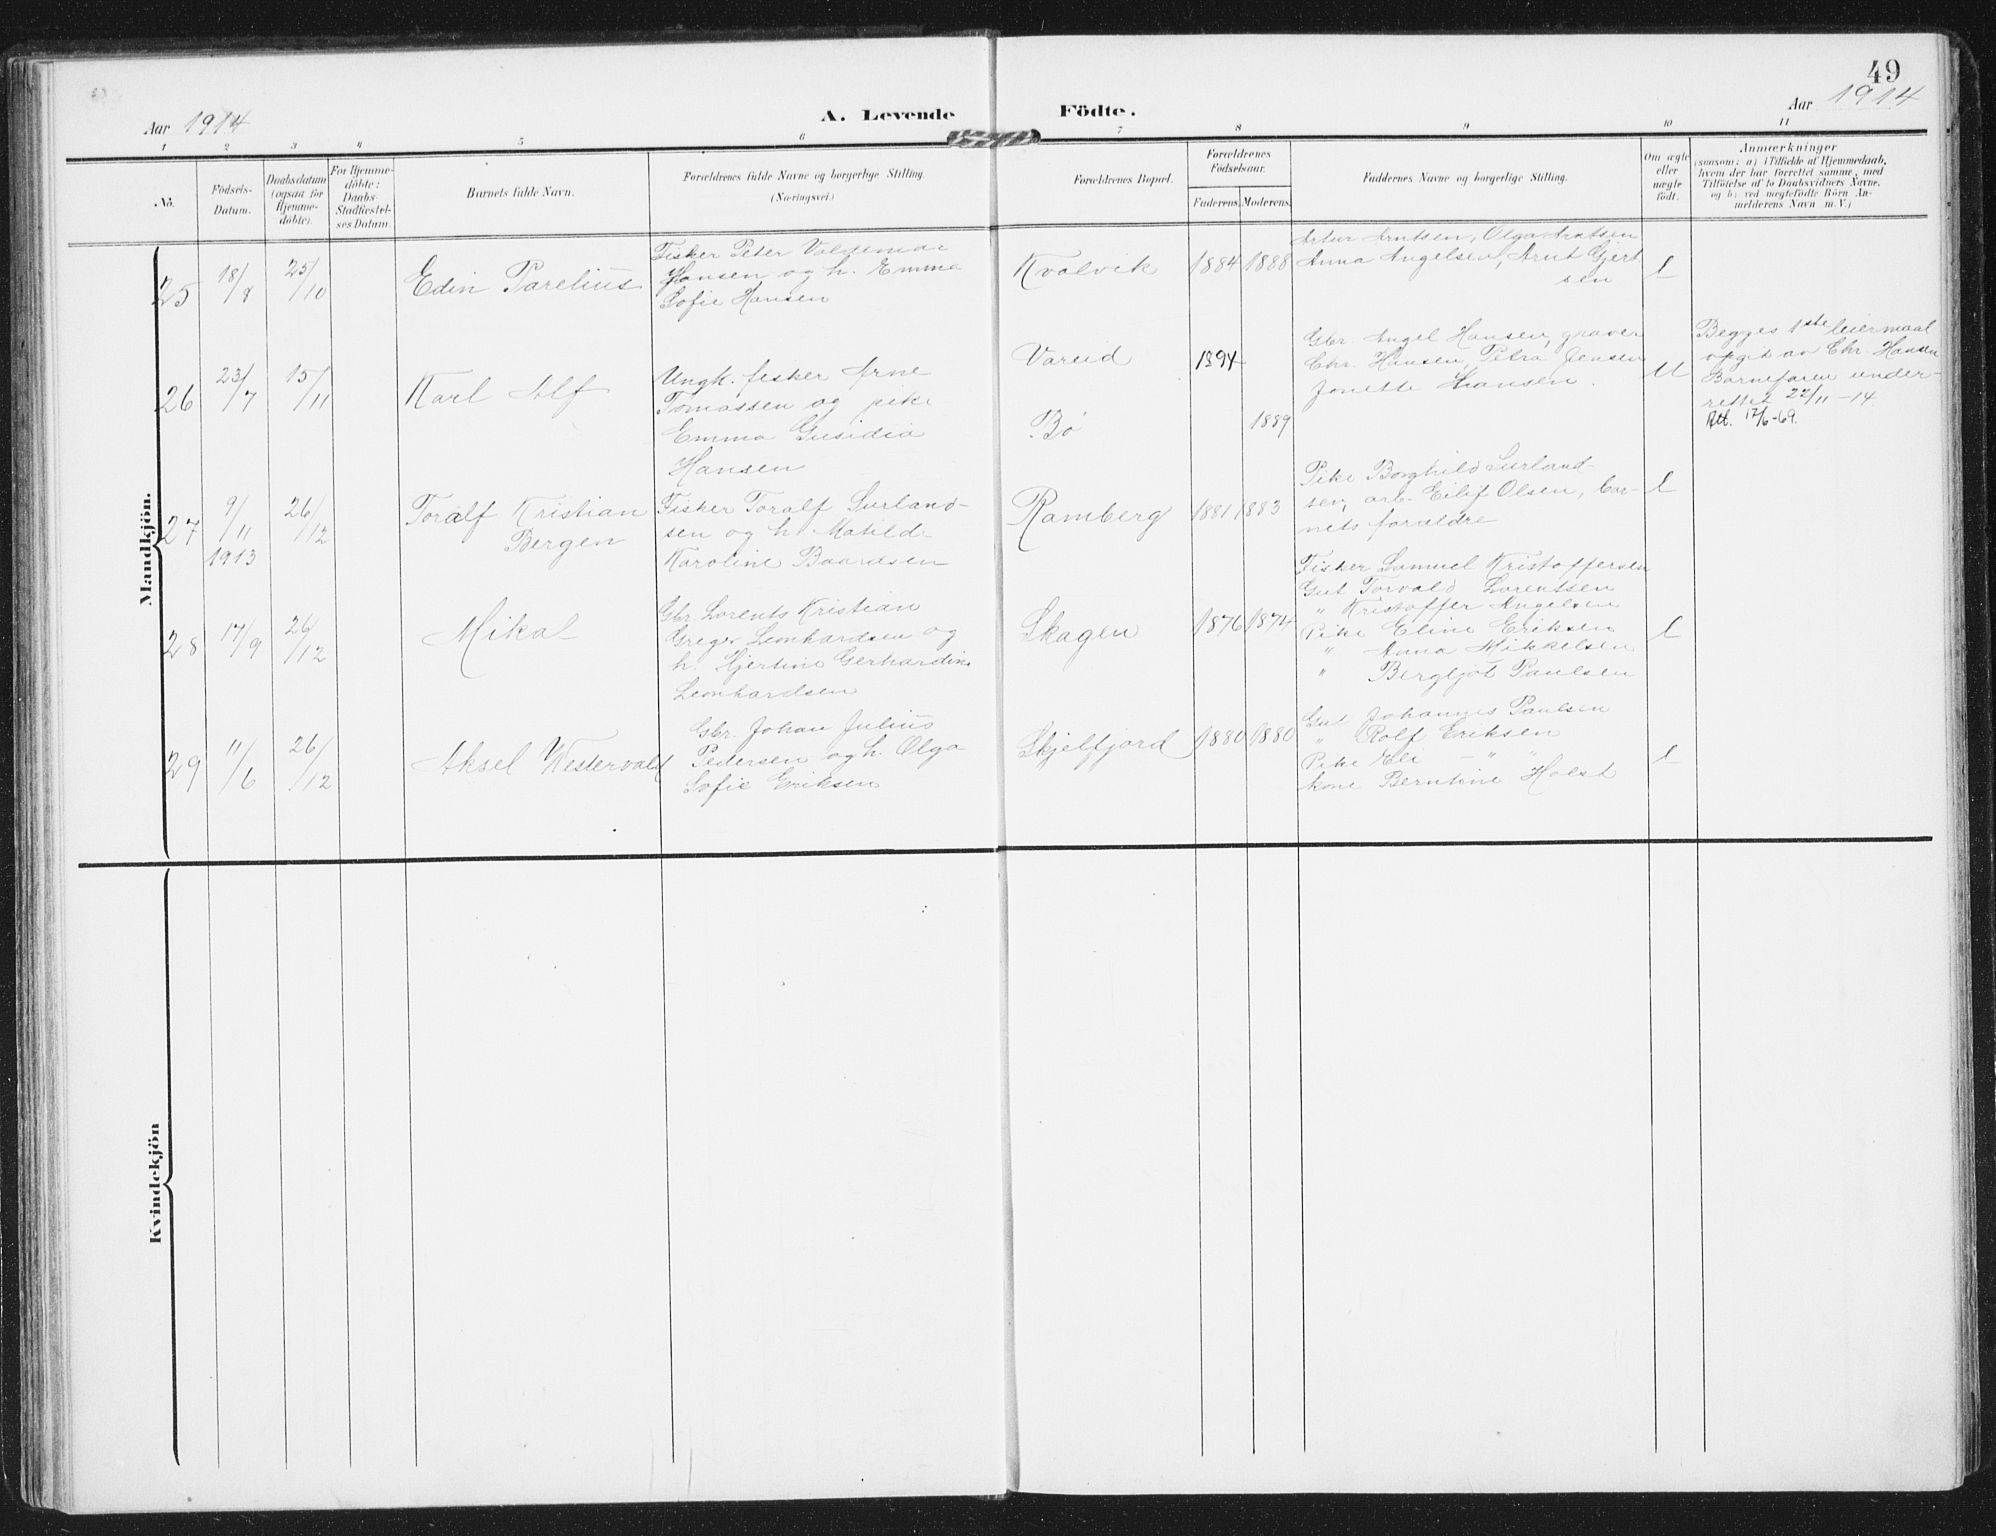 49
Aar 1914
A. Levende Födte.
Aar 1914
1 2 3 4 5 6 7 8 9 10 11
No.
Födsels-
Datum.
Daabsdatum
(ogsaa for
Hjemme-
döbte).
For Hjemme-
döbte:
Daabs-
Stadfæstel-
ses Datum.
Barnets fulde Navn.
Forældrenes fulde Navne og borgerlige Stilling.
(Næringsvei.)
Forældrenes Bopæl.
Forældrenes
Födselsaar.
Faderens. Moderens.
Faddernes Navne og borgerlige Stilling.
Om ægte
eller
uægte
födt.
Anmærkninger
(saasom: a) i Tilfælde af Hjemmedaab,
hvem der har forrettet samme, med
Tilföielse af to Daabsvidners Navne,
og b) ved uægtefödte Börn An-
melderens Navn m. V.)
Mandkjön.
25
18/8
25/10
Edin Parelius
Fisker Peter Valdemar
Hansen og h. Emma
Sofie Hansen
Kvalvik
1884 1888
Artur Arntsen, Olga Arntsen
Anna Angelsen, Arnt Gjert
sen
26
23/7
15/11
Karl Alf
Ungk. fisker Arne
Tomassen og pike
Emma Gusidia
Hansen
Vareid
Bø
1894
1889
Gbr. Angel Hansen, graver
Chr. Hansen, Petra Jensen
Jonette Hansen.
U
Begges 1ste leiermaal
opgit av Chr. Hansen
Barnefaren under-
rettet 22/11-14.
Att. 17/6-69.
27
9/11
1913
26/12
Toralf Kristian
Bergen
Fisker Toralf Surland-
sen og h. Matilde
Karoline Baardsen
Ramberg
1881 1883
Pike Borghild Surland-
sen, arb. Eilif Olsen, bar-
nets forældre
28
17/9
26/12
Mikal
Gbr. Lorents Kristian
Greger Leonhardsen og
h. Hjertine Gerhardine
Leonhardsen
Skagen
1876 1874
Fisker Samuel Kristoffersen
Gut Torvald Lorentsen
" Kristoffer Angelsen
Pike Eline Eriksen
" Anna Mikkelsen
" Bergljot Paulsen
29
11/6
26/12
Aksel Westervald
Gbr. Johan Julius
Pedersen og h. Olga
Sofie Eriksen
Skjelfjord
1880 1880
Gut Johannes Paulsen
" Rolf Eriksen
Pike Eli — " —
kone Berntine Holst
Kvindekjön